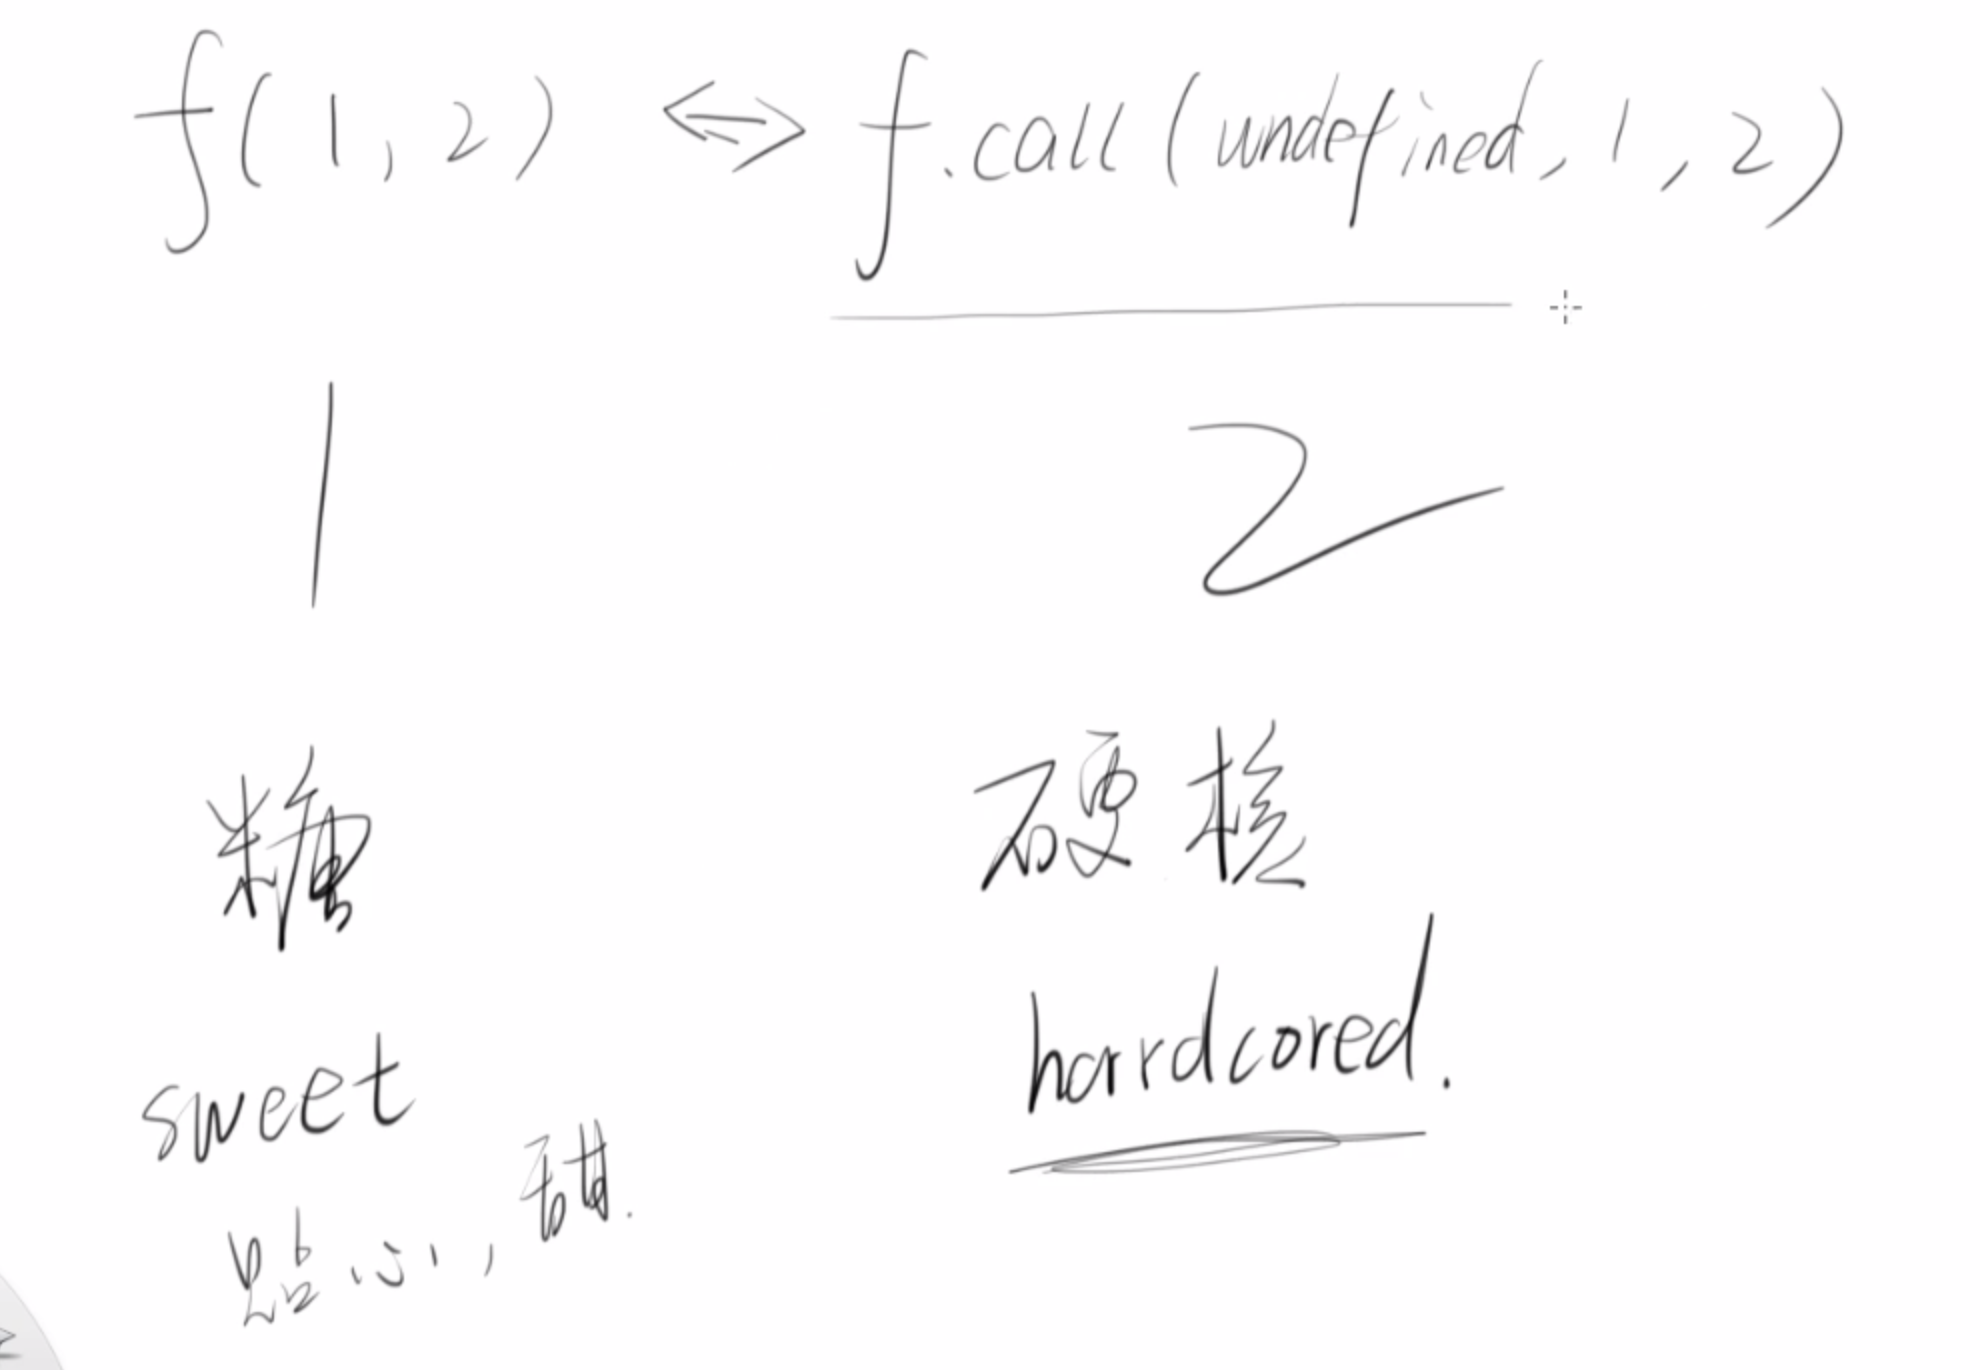 f(1,2) <=> f.call(undefined,1,2)
1 2
糖 硬核
sweet hardcored.
点心,甜.